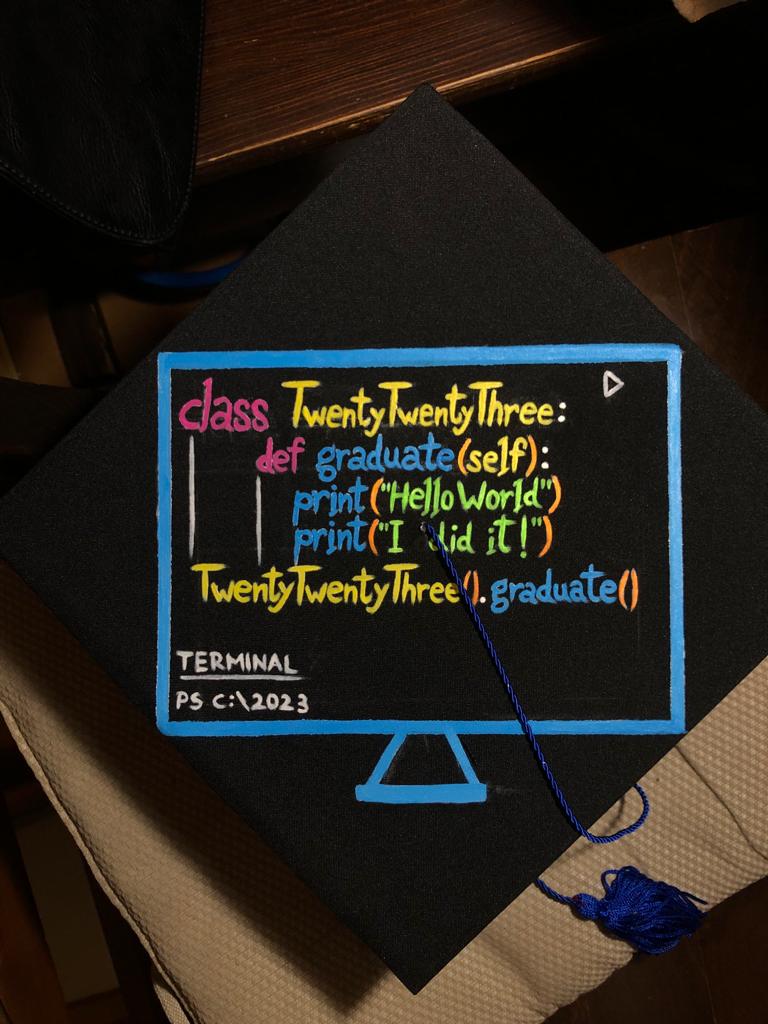 class TwentyTwentyThree:
def graduate(self):
print("Hello World")
print("I did it!")
TwentyTwentyThree().graduate()
TERMINAL
PS C:\2023